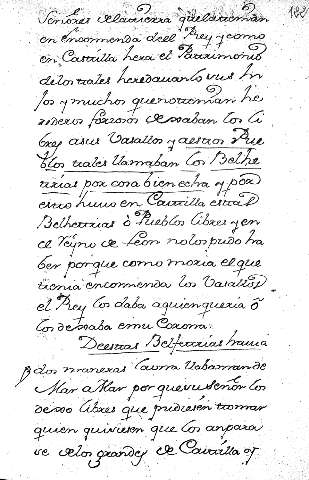 182
Señores de la tierra que la tenian
en encomenda de el Rey y como
en Castilla hera el Patrimonio
de los tales heredauanlo sus hi
jos y muchos que no tenian he
rederos forzosos dexaban los li
bres a sus Vasallos y a estos Pue
blos tales llamaban los Belhe
trias por cosa bien echa y por
esto huuo en Castilla estas
Belhetrias ò Pueblos libres y en
el Reyno de Leon no los pudo ha
ber porque como moria el que
tenia encomenda los Vasallos
el Rey los daba a quien queria ò
los dexaba en su Corona.
De estas Belfetrias hauia
dos maneras la una llaban de
Mar a Mar por que su señor los
dexo libres que pudiesen tomar
quien quisiesen que los anpara
se de los grandes de Castilla